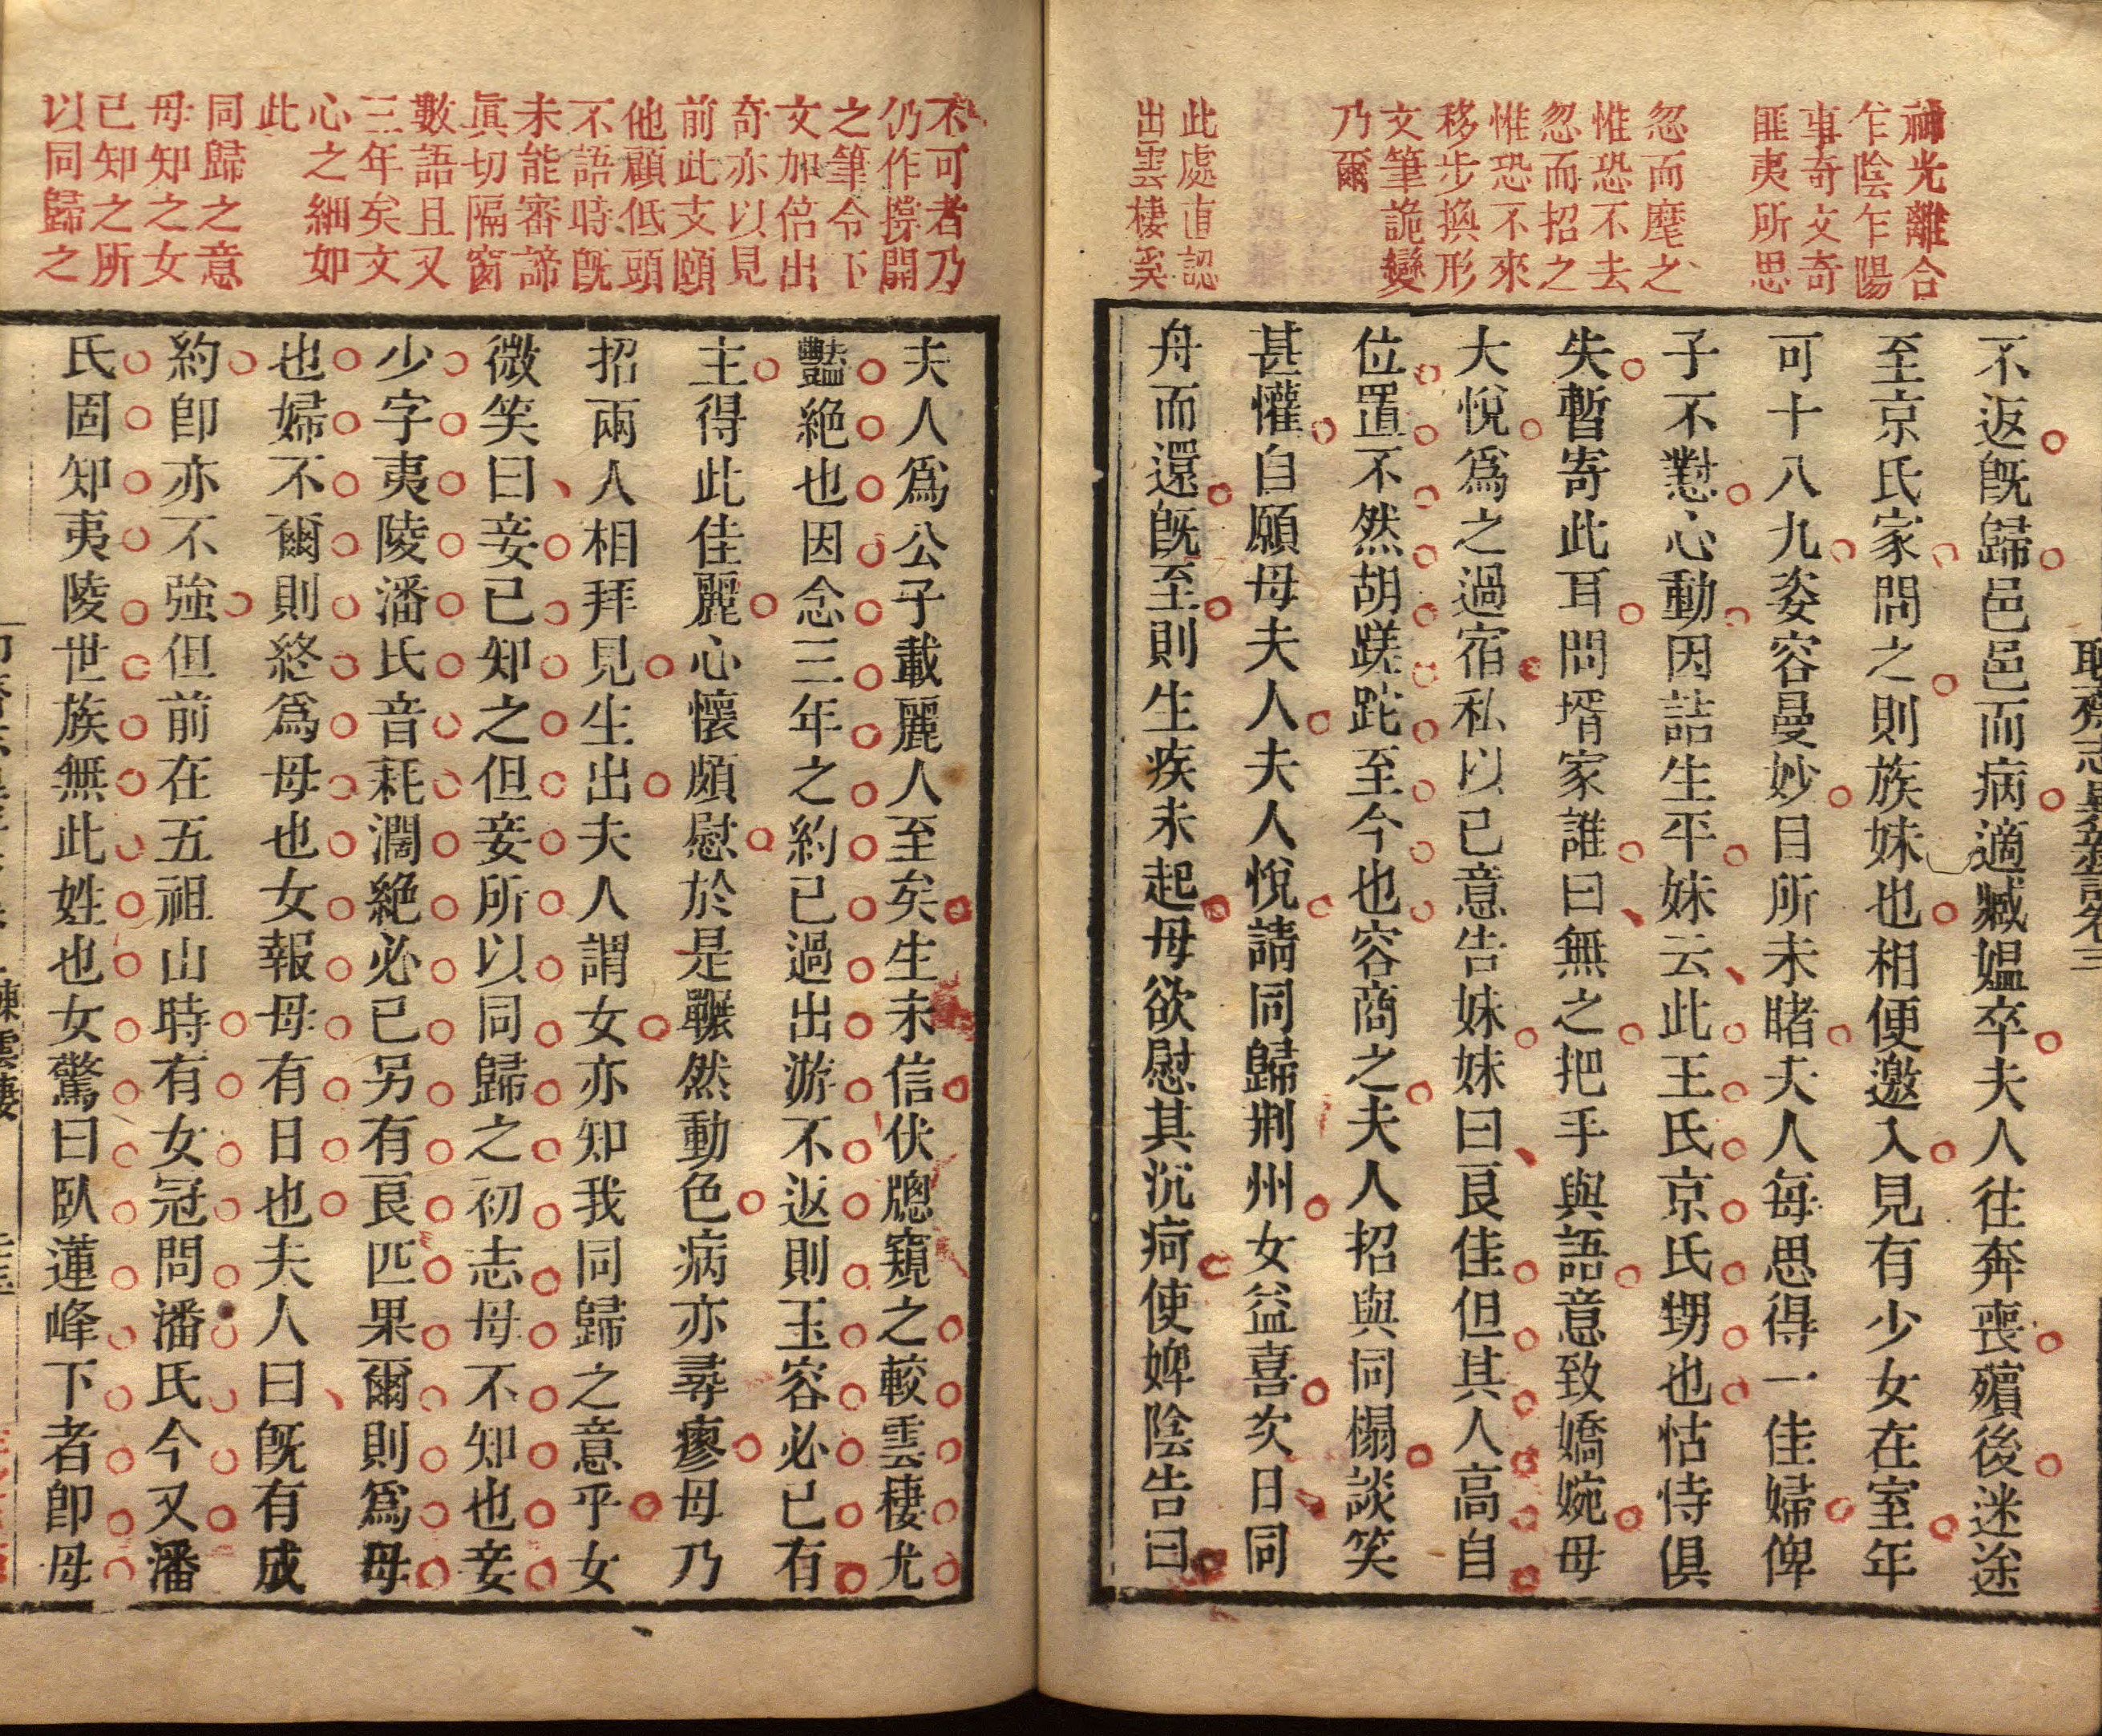 神光離合
乍陰乍陽
事奇文奇
匪夷所思
忽而麾之
惟恐不去
忽而招之
惟恐不來
移步換形
文筆詭變
乃爾
此處直認
出雲棲奚
不返既歸邑邑而病適臧媼卒夫人往奔喪殯後迷途
至京氏家問之則族妹也相便邀入見有少女在室年
可十八九姿容曼妙目所未睹夫人每思得一佳婦俾
子不懟心動因詰生平妹云此王氏京氏甥也怙恃俱
失暫寄此耳問壻家誰曰無之把手與語意致嬌婉母
大悅爲之過宿私以己意告妹妹曰良佳但其人高自
位置不然胡蹉跎至今也容商之夫人招與同榻談笑
甚懽自願母夫人夫人悅請同歸荆州女益喜次日同
舟而還既至則生疾未起母欲慰其沉疴使婢陰告曰
不可者乃
仍作撐開
之筆令下
文加倍出
奇亦以見
前此支頤
他顧低頭
不語時既
未能審諦
眞切隔窗
數語且又
三年矣文
心之細如
此
同歸之意
母知之女
已知之所
以同歸之
夫人爲公子載麗人至矣生未信伏牕窺之較雲棲尤
豔絶也因念三年之約已過出游不返則玉容必已有
主得此佳麗心懷頗慰於是囅然動色病亦尋瘳母乃
招兩人相拜見生出夫人謂女亦知我同歸之意乎女
微笑曰妾已知之但妾所以同歸之初志母不知也妾
少字夷陵潘氏音耗濶絶必已另有良匹果爾則爲母
也婦不爾則終爲母也女報母有日也夫人曰既有成
約卽亦不強但前在五祖山時有女冠問潘氏今又潘
氏固知夷陵世族無此姓也女驚曰臥蓮峰下者卽母